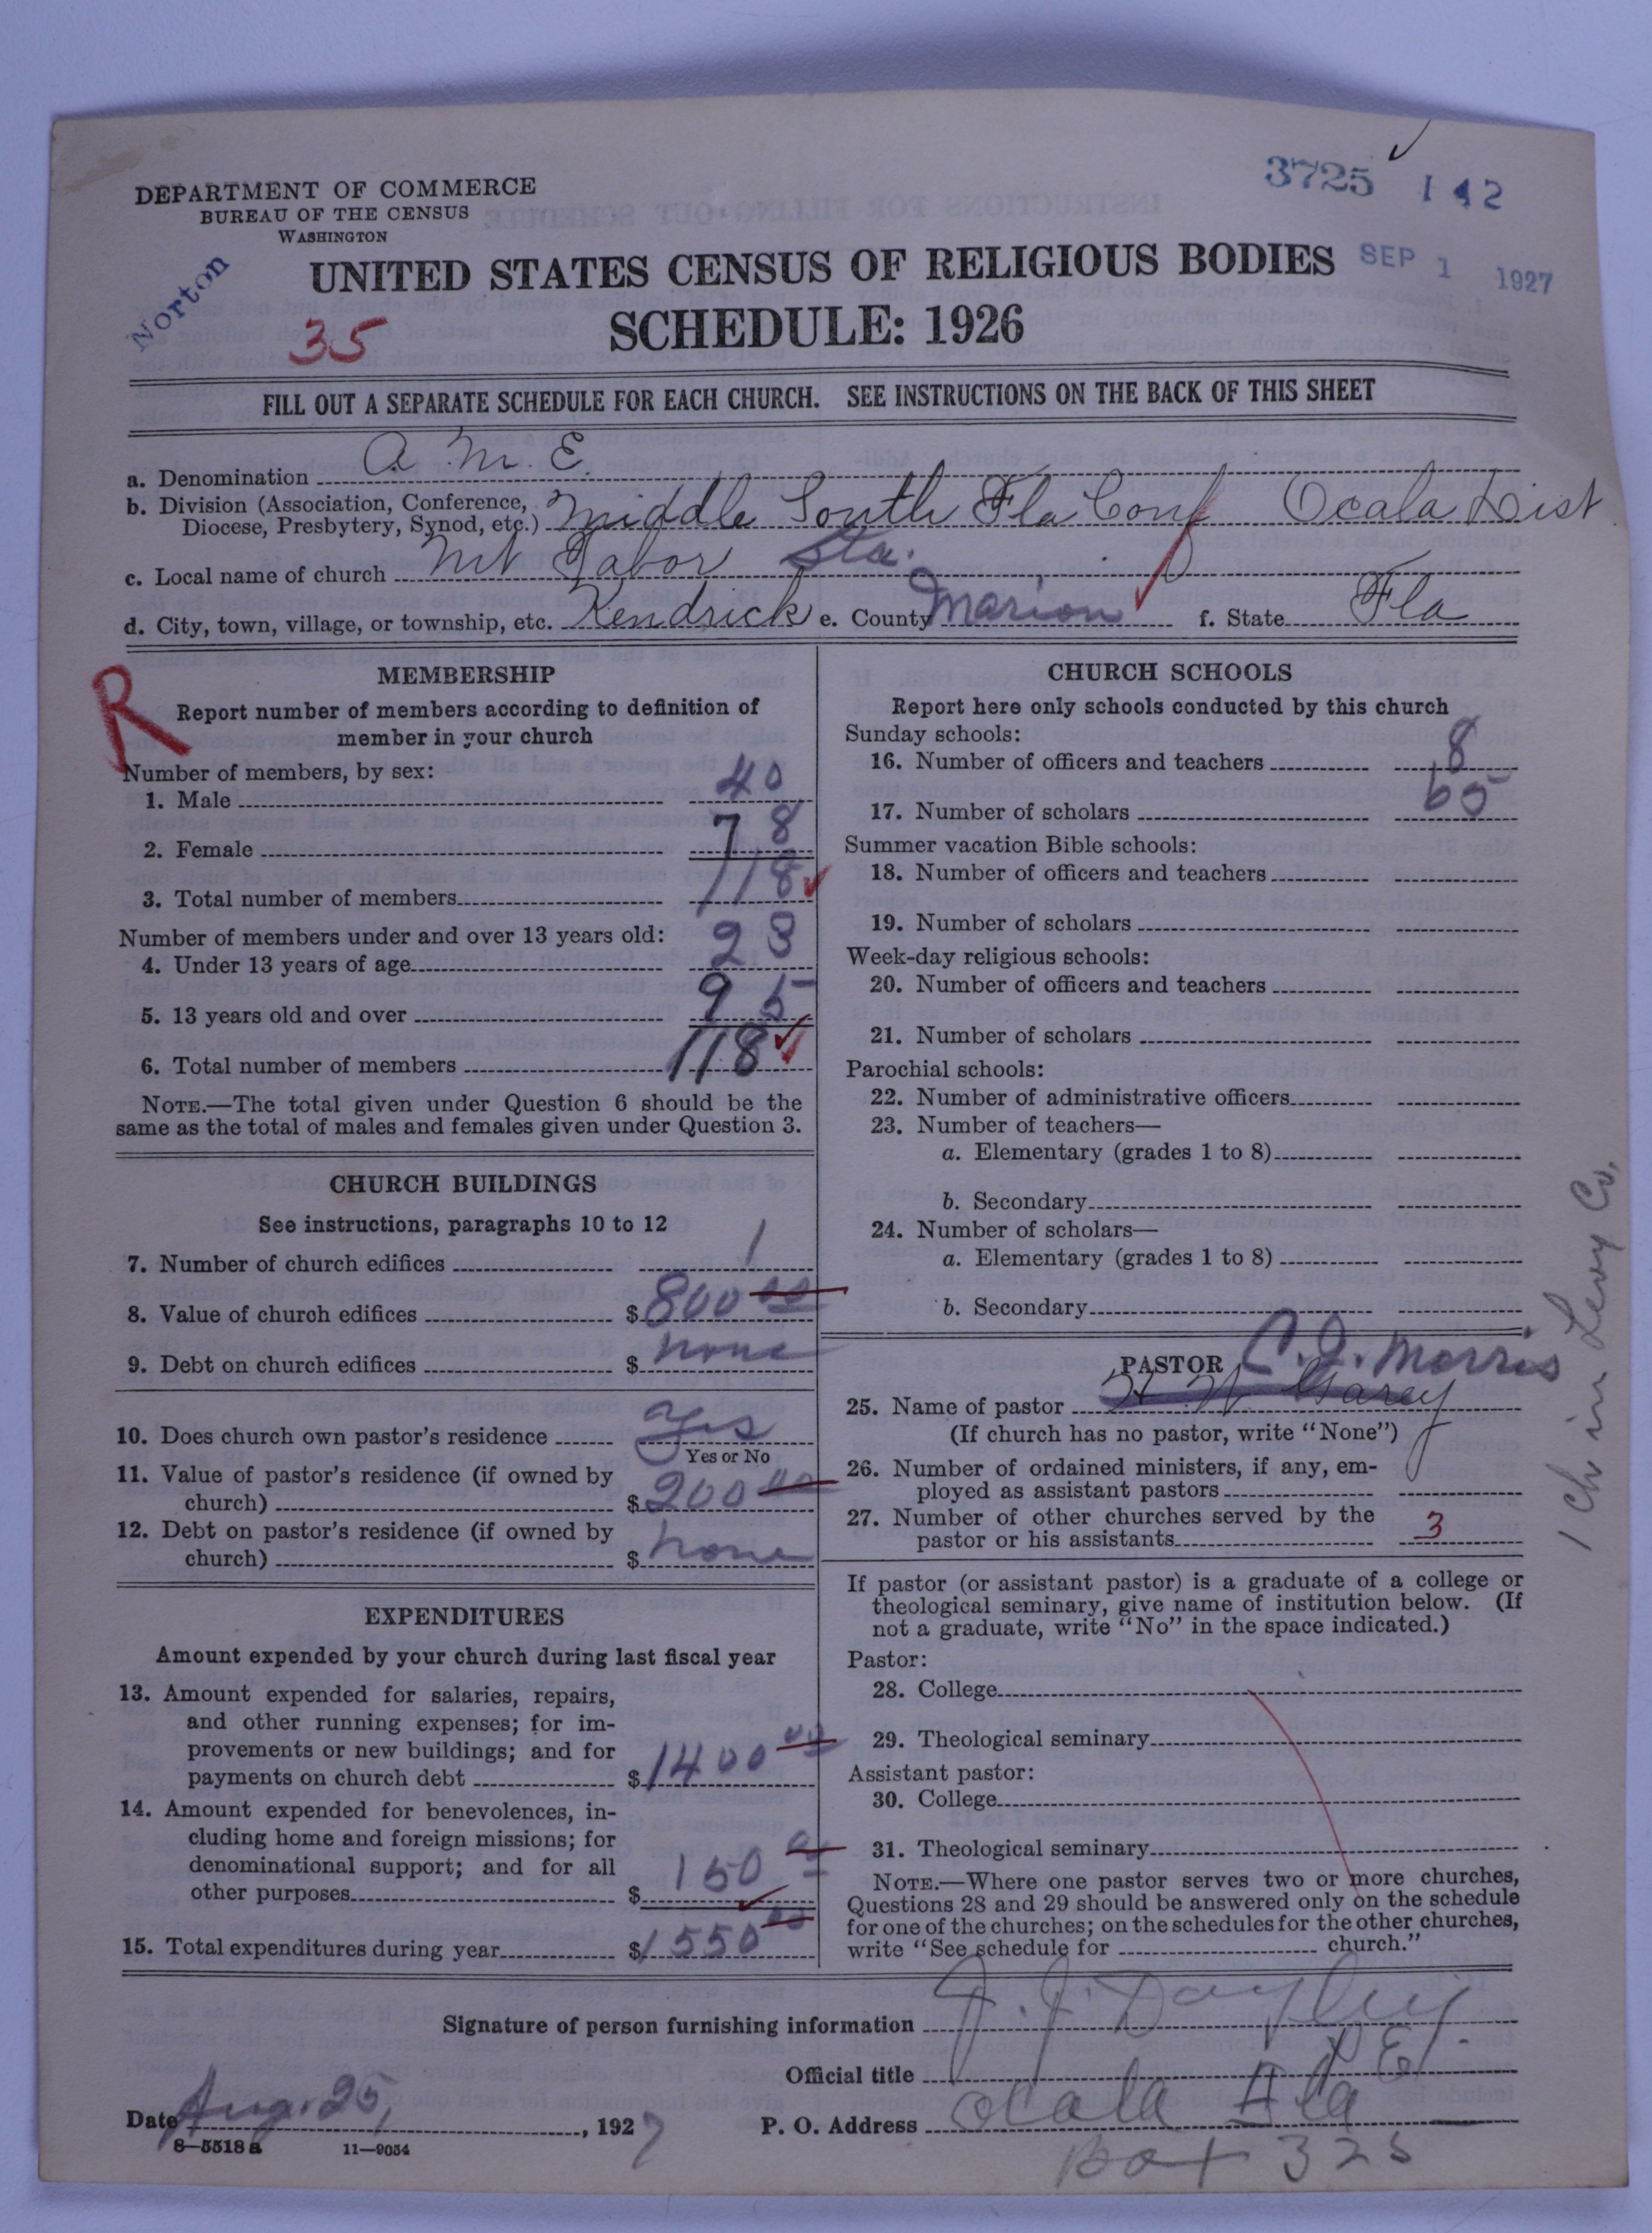 3725 142
DEPARTMENT OF COMMERCE
BUREAU OF THE CENSUS
WASHINGTON
Norton
UNITED STATES CENSUS OF RELIGIOUS BODIES
SEP 1 1927
35
SCHEDULE: 1926
FILL OUT A SEPARATE SCHEDULE FOR EACH CHURCH. SEE INSTRUCTIONS ON THE BACK OF THIS SHEET
a. Denomination A. M. E.
b. Division (Association, Conference,
Diocese, Presbytery, Synod, etc.) Middle South Fla Conf Ocala Dist
c. Local name of church Mt Tabor Sta.
d. City, town, village, or township, etc. Kendrick e. County Marion f. State Fla
R
MEMBERSHIP
Report number of members according to definition of
member in your church
Number of members, by sex:
1. Male 40
2. Female 78
3. Total number of members 118
Number of members under and over 13 years old:
4. Under 13 years of age 23
5. 13 years old and over 95
6. Total number of members 118
NOTE.—The total given under Question 6 should be the
same as the total of males and females given under Question 3.
CHURCH BUILDINGS
See instructions, paragraphs 10 to 12
7. Number of church edifices 1
8. Value of church edifices $800 00
9. Debt on church edifices $ none
10. Does church own pastor's residence yes
Yes or No
11. Value of pastor's residence (if owned by
church) $200 00
12. Debt on pastor's residence (if owned by
church) $ none
EXPENDITURES
Amount expended by your church during last fiscal year
13. Amount expended for salaries, repairs,
and other running expenses; for im-
provements or new buildings; and for
payments on church debt $1400 00
14. Amount expended for benevolences, in-
cluding home and foreign missions; for
denominational support; and for all
other purposes $ 150 00
15. Total expenditures during year $1550 00
CHURCH SCHOOLS
Report here only schools conducted by this church
Sunday schools:
16. Number of officers and teachers 8
17. Number of scholars 65
Summer vacation Bible schools:
18. Number of officers and teachers
19. Number of scholars
Week-day religious schools:
20. Number of officers and teachers
21. Number of scholars
Parochial schools:
22. Number of administrative officers
23. Number of teachers—
a. Elementary (grades 1 to 8)
b. Secondary
24. Number of scholars—
a. Elementary (grades 1 to 8)
b. Secondary
PASTOR C. J. Morris
25. Name of pastor
(If church has no pastor, write "None")
26. Number of ordained ministers, if any, em-
ployed as assistant pastors
27. Number of other churches served by the
pastor or his assistants 3
If pastor (or assistant pastor) is a graduate of a college or
theological seminary, give name of institution below. (If
not a graduate, write "No" in the space indicated.)
Pastor:
28. College
29. Theological seminary
Assistant pastor:
30. College
31. Theological seminary
NOTE.—Where one pastor serves two or more churches,
Questions 28 and 29 should be answered only on the schedule
for one of the churches; on the schedules for the other churches,
write "See schedule for church."
1 Ch in Levy Co.
Signature of person furnishing information J. J.
Official title P. E.
Date Aug. 25, 1927 P. O. Address Ocala Fla
8—5518a 11—9054
Box 325